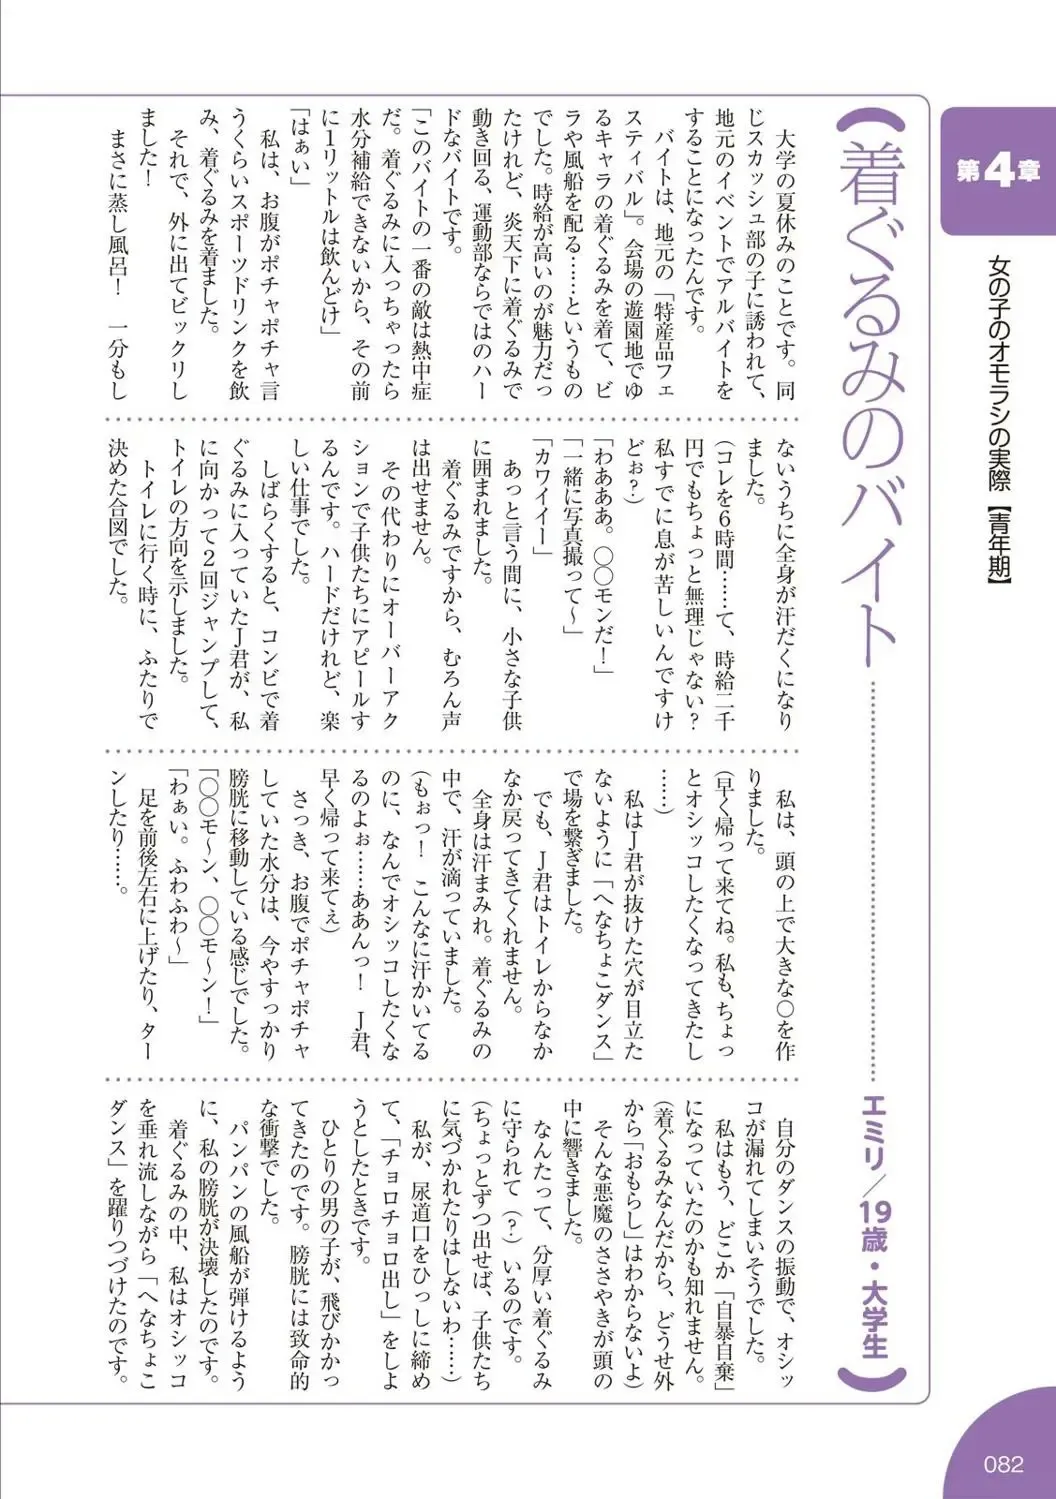 第4章
女の子のオモラシの実際【青年期】
着ぐるみのバイト
エミリ／19歳・大学生
大学の夏休みのことです。同
じスカッシュ部の子に誘われて、
地元のイベントでアルバイトを
することになったんです。
バイトは、地元の「特産品フェ
スティバル」。会場の遊園地でゆ
るキャラの着ぐるみを着て、ビ
ラや風船を配る……というもの
でした。時給が高いのが魅力だっ
たけれど、炎天下に着ぐるみで
動き回る、運動部ならではのハー
ドなバイトです。
「このバイトの一番の敵は熱中症
だ。着ぐるみに入っちゃったら
水分補給できないから、その前
に1リットルは飲んどけ」
「はぁい」
私は、お腹がポチャポチャ言
うくらいスポーツドリンクを飲
み、着ぐるみを着ました。
それで、外に出てビックリし
ました！
まさに蒸し風呂！　一分もし
ないうちに全身が汗だくになり
ました。
（コレを6時間……て、時給二千
円でもちょっと無理じゃない？
私すでに息が苦しいんですけ
どぉ？）
「わあああ。〇〇モンだ！」
「一緒に写真撮って～」
「カワイイー」
あっと言う間に、小さな子供
に囲まれました。
着ぐるみですから、むろん声
は出せません。
その代わりにオーバーアク
ションで子供たちにアピールす
るんです。ハードだけれど、楽
しい仕事でした。
しばらくすると、コンビで着
ぐるみに入っていたＪ君が、私
に向かって2回ジャンプして、
トイレの方向を示しました。
トイレに行く時に、ふたりで
決めた合図でした。
私は、頭の上で大きな〇を作
りました。
（早く帰って来てね。私も、ちょっ
とオシッコしたくなってきたし
……）
私はＪ君が抜けた穴が目立た
ないように「へなちょこダンス」
で場を繋ぎました。
でも、Ｊ君はトイレからなか
なか戻ってきてくれません。
全身は汗まみれ。着ぐるみの
中で、汗が滴っていました。
（もぉっ！　こんなに汗かいてる
のに、なんでオシッコしたくな
るのよぉ……ああんっ！　Ｊ君、
早く帰って来てぇ）
さっき、お腹でポチャポチャ
していた水分は、今やすっかり
膀胱に移動している感じでした。
「〇〇モ～ン、〇〇モ～ン！」
「わぁい。ふわふわ～」
足を前後左右に上げたり、ター
ンしたり……。
自分のダンスの振動で、オシッ
コが漏れてしまいそうでした。
私はもう、どこか「自暴自棄」
になっていたのかも知れません。
（着ぐるみなんだから、どうせ外
から「おもらし」はわからないよ）
そんな悪魔のささやきが頭の
中に響きました。
なんたって、分厚い着ぐるみ
に守られて（？）いるのです。
（ちょっとずつ出せば、子供たち
に気づかれたりはしないわ……）
私が、尿道口をひっしに締め
て、「チョロチョロ出し」をしよ
うとしたときです。
ひとりの男の子が、飛びかかっ
てきたのです。膀胱には致命的
な衝撃でした。
パンパンの風船が弾けるよう
に、私の膀胱が決壊したのです。
着ぐるみの中、私はオシッコ
を垂れ流しながら「へなちょこ
ダンス」を躍りつづけたのです。
082